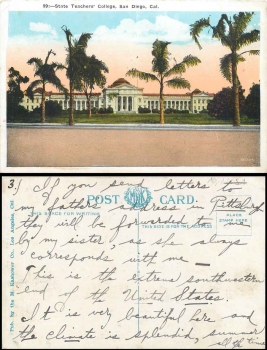 59:-State Teachers' College, San Diego, Cal.
3.) If you send letters to
POST CARD.
my father's address in Pittsburg
THIS SPACE FOR WRITING
PLACE
STAMP HERE
they will be forwarded to me
by my sister, as she always
corresponds with me —
This is the extreme southwestern
end of the United States.
It is very beautiful here and
the climate is splendid, summer
all the time
Pub. by the M. Kashower Co., Los Angeles, Cal.